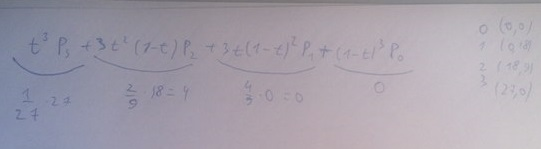 t³ P₃ + 3t² (1-t) P₂ + 3t(1-t)² P₁ + (1-t)³ P₀
1/27 · 27
2/9 · 18 = 4
4/3 · 0 = 0
0
0 (0,0)
1 (0,18)
2 (18,9)
3 (27,0)